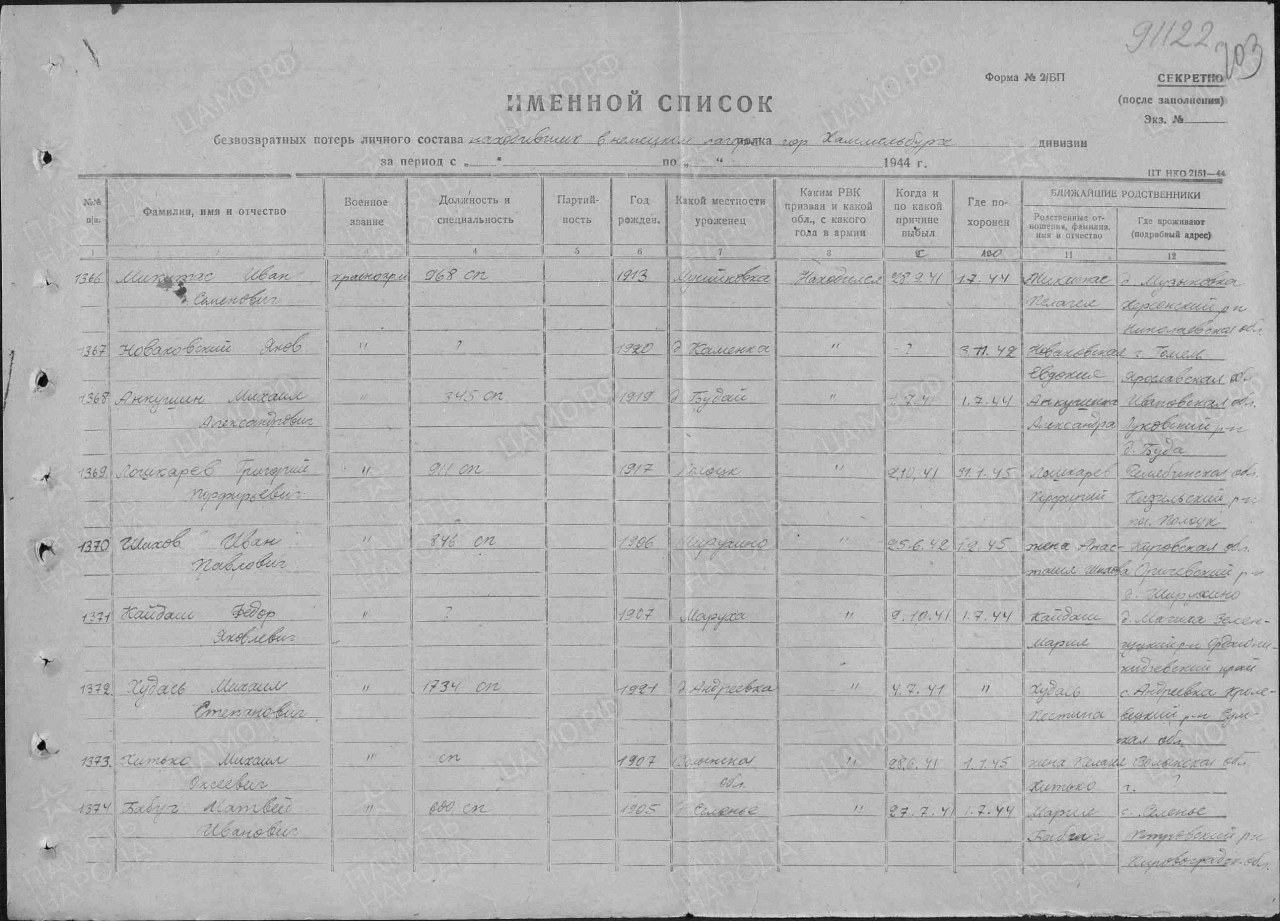 91122
203
Форма № 2/БП
СЕКРЕТНО
(после заполнения)
Экз. №
ИМЕННОЙ СПИСОК
безвозвратных потерь личного состава находившихся в немецком лагере полка гор Хаммельбург дивизии
за период с „ “ по „ “ 1944 г.
ЦТ НКО 2151—44
№№ п/п. Фамилия, имя и отчество Военное звание Должность и специальность Партий-ность Год рожден. Какой местности уроженец Каким РВК призван и какой обл., с какого года в армии Когда и по какой причине выбыл Где по-хоронен БЛИЖАЙШИЕ РОДСТВЕННИКИ
Родственные от-ношения, фамилия, имя и отчество Где проживают (подробный адрес)
1 4 5 6 7 8 11 12
1366 Микитас Иван красноарм 968 сп 1913 Находился 28.9.41 1.7.44 Микитас д.
Семенович Пелагея Херсонский р-н
Николаевская обл.
1367 Новаковский Яков " ? 1920 д Каменка " ? 3.11.42 Новаковская г. Гомель
Евдокия Ярославская обл
1368 Анкушин Михаил " 345 сп 1919 д Будай " 1.7.44 Анкушина Ивановская обл.
Александрович Александра р-н
д. Буда
1369 Лошкарев Григорий " 911 сп 1917 Полоцк " 2.10.41 31.1.45 Лошкарев Челябинская обл.
Порфирьевич Порфирий Кизильский р-н
пос. Полоцк
1370 Шихов Иван " 846 сп 1906 " 25.6.42 жена Анас- Кировская обл
Павлович тасия Шихова Оричевский р-н
д.
1371 Кайдаш Федор " ? 1907 Маруха " 9.10.41 1.7.44 Кайдаш Зелен-
Яковлевич Мария чукский р-н Орджони-
кидзевский край
1372 Худась Михаил " 1734 сп 1921 д Андреевка " 4.7.41 " Худась с. Андреевка Кроле-
Степанович вецкий р-н Сум-
ская обл.
1373 Хитько Михаил " сп 1907 Волынская " 28.6.41 1.1.45 жена Волынская обл
Оксеевич обл. Хитько г. ?
1374 Бабич Матвей " сп 1905 " 27.7.41 1.7.44 Мария с.
Иванович Петровский р-н
Кировоградск. обл.